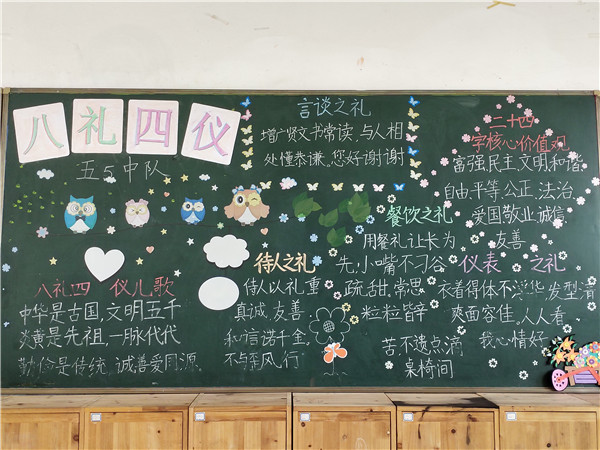 八礼四仪
五5中队
八礼四 仪儿歌
中华是古国,文明五千
炎黄是先祖,一脉代代
勤俭是传统 诚善爱同源。
言谈之礼
增广贤文书常读,与人相
处懂恭谦。您好谢谢
待人之礼
待人以礼重
真诚、友善
和信诺千金,
不与至风行
餐饮之礼
用餐礼让长为
先,小嘴不刁谷
蔬甜.常思
粒粒皆辛
苦,不逸点滴
桌椅间
二十四
字核心价值观
富强,民主,文明,和谐
自由,平等,公正,法治,
爱国敬业,诚信
友善
仪表 之礼
衣着得体不浮华,发型清
爽面容佳,人人看
我心情好